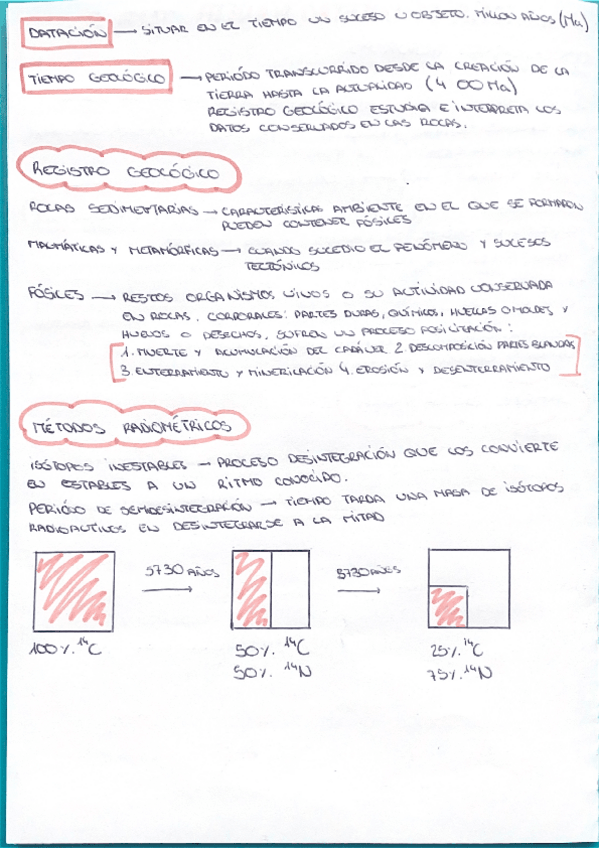 DATACIÓN → SITUAR EN EL TIEMPO UN SUCESO U OBJETO. MILLON AÑOS (Ma)
TIEMPO GEOLÓGICO → PERIÓDO TRANSCURRIDO DESDE LA CREACIÓN DE LA
TIERRA HASTA LA ACTUALIDAD (4 00 Ma)
REGISTRO GEOLÓGICO ESTUDIA E INTERPRETA LOS
DATOS CONSERVADOS EN LAS ROCAS.
REGISTRO GEOLÓGICO
ROCAS SEDIMENTARIAS → CARACTERISTICAS AMBIENTE EN EL QUE SE FORMARON
PUEDEN CONTENER FÓSILES
MAGMÁTICAS Y METAMÓRFICAS → CUANDO SUCEDIO EL FENÓMENO Y SUCESOS
TECTÓNICOS
FÓSILES → RESTOS ORGANISMOS VIVOS O SU ACTIVIDAD CONSERVADA
EN ROCAS. CORPORALES: PARTES DURAS, QUÍMICOS, HUELLAS O MOLDES Y
HUEVOS O DESECHOS. SUFREN UN PROCESO FOSILITACIÓN:
1. MUERTE Y ACUMULACIÓN DEL CADÁVER 2. DESCOMPOSICIÓN PARTES BLANDAS
3. ENTERRAMIENTO Y MINERILACIÓN 4. EROSIÓN Y DESENTERRAMIENTO
MÉTODOS RADIOMÉTRICOS
ISÓTOPOS INESTABLES → PROCESO DESINTEGRACIÓN QUE LOS CONVIERTE
EN ESTABLES A UN RITMO CONOCIDO.
PERIÓDO DE SEMIDESINTEGRACIÓN → TIEMPO TARDA UNA MASA DE ISÓTOPOS
RADIOACTIVOS EN DESINTEGRARSE A LA MITAD
5730 AÑOS → 5730 AÑOS →
100%. ¹⁴C 50%. ¹⁴C 25%. ¹⁴C
50%. ¹⁴N 75%. ¹⁴N